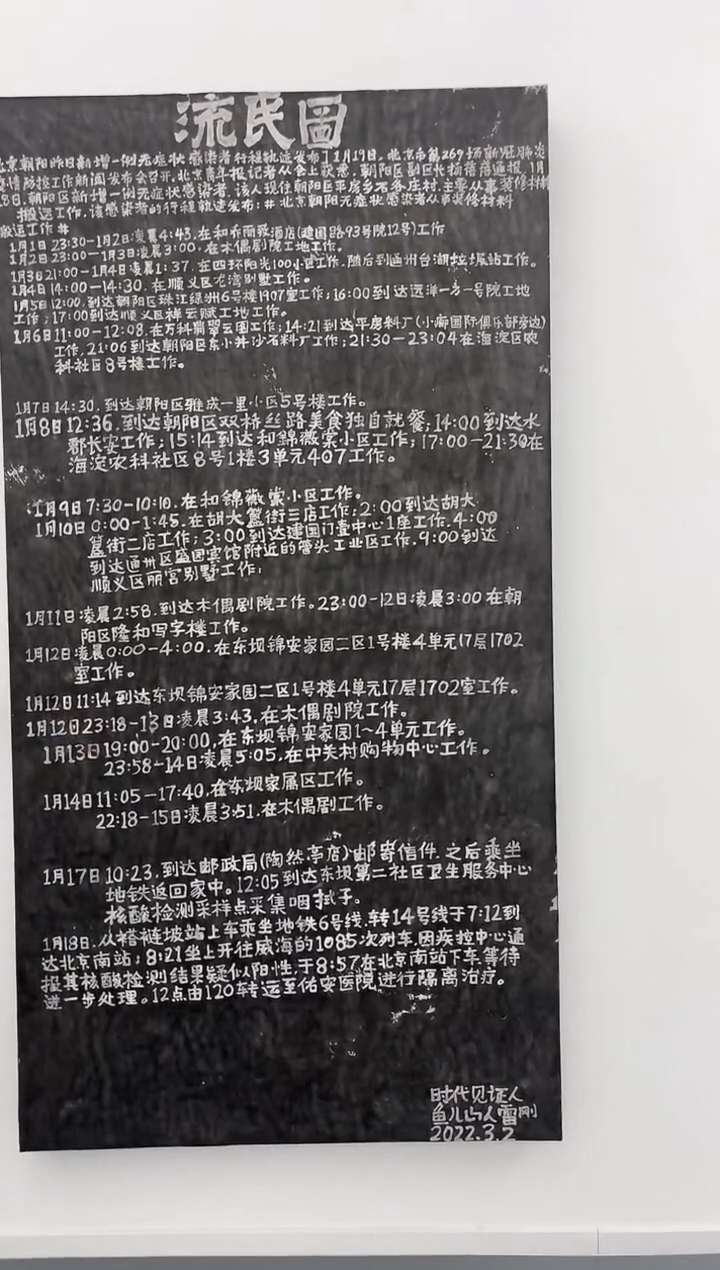 流民图
北京朝阳昨日新增一例无症状感染者行程轨迹发布1月19日,北京市第269场新冠肺炎
疫情防控工作新闻发布会召开.北京青年报记者从会上获悉,朝阳区副区长杨蓓蓓通报,1月
18日,朝阳区新增一例无症状感染者,该人现住朝阳区平房乡石各庄村,主要从事装修材料
搬运工作,该感染者的行程轨迹发布:#北京朝阳无症状感染者从事装修材料
搬运工作#
1月1日23:30-1月2日凌晨4:43.在和乔丽致酒店(建国路93号院12号)工作
1月2日23:00-1月3日凌晨3:00,在木偶剧院工地工作。
1月3日21:00-1月4日凌晨1:37.在四环阳光100小区工作.随后到通州台湖垃圾站工作。
1月4日14:00-14:30.在顺义区龙湾别墅工作。
1月5日12:00.到达朝阳区珠江绿洲6号楼1907室工作;16:00到达远洋一方一号院工地
工作;17:00到达顺义区祥云赋工地工作。
1月6日11:00-12:08.在万科翡翠云图工作;14:21到达平房料厂(小廊国际俱乐部旁边)
工作,21:06到达朝阳区东小井沙石料厂工作;21:30-23:04在海淀区农
科社区8号楼工作。
1月7日14:30.到达朝阳区雅成一里小区5号楼工作。
1月8日12:36.到达朝阳区双桥丝路美食独自就餐;14:00到达水
郡长安工作;15:14到达和锦薇棠小区工作;17:00-21:30在
海淀农科社区8号1楼3单元407工作。
1月9日7:30-10:10.在和锦薇棠小区工作。
1月10日0:00-1:45.在胡大簋街三店工作;2:00到达胡大
簋街二店工作;3:00到达建国门壹中心1座工作.4:00
到达通州区盛园宾馆附近的管头工业区工作.9:00到达
顺义区丽宫别墅工作;
1月11日凌晨2:58.到达木偶剧院工作。23:00-12日凌晨3:00在朝
阳区隆和写字楼工作。
1月12日凌晨0:00-4:00.在东坝锦安家园二区1号楼4单元17层1702
室工作。
1月12日11:14到达东坝锦安家园二区1号楼4单元17层1702室工作。
1月12日23:18-13日凌晨3:43.在木偶剧院工作。
1月13日19:00-20:00,在东坝锦安家园1~4单元工作。
23:58-14日凌晨5:05,在中关村购物中心工作。
1月14日11:05-17:40.在东坝家属区工作。
22:18-15日凌晨3:51.在木偶剧工作。
1月17日10:23.到达邮政局(陶然亭店)邮寄信件.之后乘坐
地铁返回家中。12:05到达东坝第二社区卫生服务中心
核酸检测采样点采集咽拭子。
1月18日.从褡裢坡站上车乘坐地铁6号线.转14号线于7:12到
达北京南站;8:21坐上开往威海的1085次列车.因疾控中心通
报其核酸检测结果疑似阳性,于8:57在北京南站下车等待
进一步处理。12点由120转运至佑安医院进行隔离治疗。
时代见证人
鱼儿山人雷刚
2022.3.2